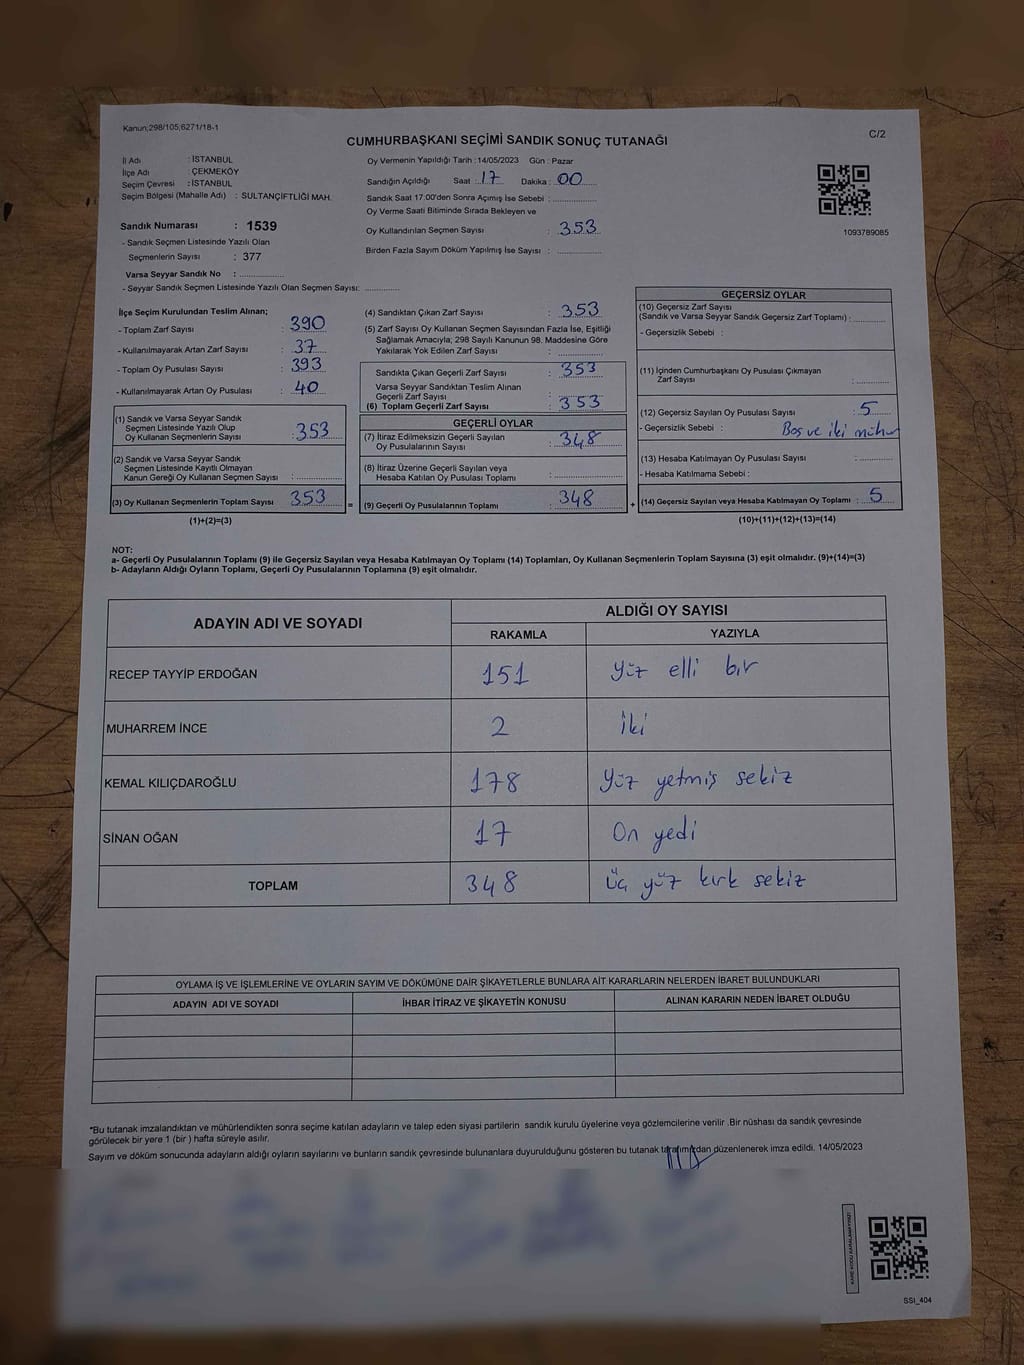 Kanun;298/105;6271/18-1
C/2
CUMHURBAŞKANI SEÇİMİ SANDIK SONUÇ TUTANAĞI
İl Adı : İSTANBUL
İlçe Adı : ÇEKMEKÖY
Seçim Çevresi : İSTANBUL
Seçim Bölgesi (Mahalle Adı) : SULTANÇİFTLİĞİ MAH.
Sandık Numarası : 1539
- Sandık Seçmen Listesinde Yazılı Olan
Seçmenlerin Sayısı : 377
Varsa Seyyar Sandık No : ..............
- Seyyar Sandık Seçmen Listesinde Yazılı Olan Seçmen Sayısı: ............
Oy Vermenin Yapıldığı Tarih : 14/05/2023 Gün : Pazar
Sandığın Açıldığı Saat : 17 Dakika : 00
Sandık Saat 17.00'den Sonra Açımış İse Sebebi : ..............
Oy Verme Saati Bitiminde Sırada Bekleyen ve
Oy Kullandırılan Seçmen Sayısı : 353
Birden Fazla Sayım Döküm Yapılmış İse Sayısı : ..............
1093789085
İlçe Seçim Kurulundan Teslim Alınan;
- Toplam Zarf Sayısı : 390
- Kullanılmayarak Artan Zarf Sayısı : 37
- Toplam Oy Pusulası Sayısı : 393
- Kullanılmayarak Artan Oy Pusulası : 40
(1) Sandık ve Varsa Seyyar Sandık
Seçmen Listesinde Yazılı Olup
Oy Kullanan Seçmenlerin Sayısı : 353
(2) Sandık ve Varsa Seyyar Sandık
Seçmen Listesinde Kayıtlı Olmayan
Kanun Gereği Oy Kullanan Seçmen Sayısı : ..............
(3) Oy Kullanan Seçmenlerin Toplam Sayısı 353 =
(1)+(2)=(3)
(4) Sandıktan Çıkan Zarf Sayısı : 353
(5) Zarf Sayısı Oy Kullanan Seçmen Sayısından Fazla İse, Eşitliği
Sağlamak Amacıyla; 298 Sayılı Kanunun 98. Maddesine Göre
Yakılarak Yok Edilen Zarf Sayısı : ..............
Sandıkta Çıkan Geçerli Zarf Sayısı : 353
Varsa Seyyar Sandıktan Teslim Alınan
Geçerli Zarf Sayısı : ..............
(6) Toplam Geçerli Zarf Sayısı : 353
GEÇERLİ OYLAR
(7) İtiraz Edilmeksizin Geçerli Sayılan
Oy Pusulalarının Sayısı : 348
(8) İtiraz Üzerine Geçerli Sayılan veya
Hesaba Katılan Oy Pusulası Toplamı : ..............
(9) Geçerli Oy Pusulalarının Toplamı 348 +
GEÇERSİZ OYLAR
(10) Geçersiz Zarf Sayısı
(Sandık ve Varsa Seyyar Sandık Geçersiz Zarf Toplamı) : ...........
- Geçersizlik Sebebi :
(11) İçinden Cumhurbaşkanı Oy Pusulası Çıkmayan
Zarf Sayısı : ...........
(12) Geçersiz Sayılan Oy Pusulası Sayısı : 5
- Geçersizlik Sebebi : Boş ve iki mühür
(13) Hesaba Katılmayan Oy Pusulası Sayısı : ...........
- Hesaba Katılmama Sebebi :
(14) Geçersiz Sayılan veya Hesaba Katılmayan Oy Toplamı : 5
(10)+(11)+(12)+(13)=(14)
NOT:
a- Geçerli Oy Pusulalarının Toplamı (9) ile Geçersiz Sayılan veya Hesaba Katılmayan Oy Toplamı (14) Toplamları, Oy Kullanan Seçmenlerin Toplam Sayısına (3) eşit olmalıdır. (9)+(14)=(3)
b- Adayların Aldığı Oyların Toplamı, Geçerli Oy Pusulalarının Toplamına (9) eşit olmalıdır.
ADAYIN ADI VE SOYADI ALDIĞI OY SAYISI
RAKAMLA YAZIYLA
RECEP TAYYİP ERDOĞAN 151 Yüz elli bir
MUHARREM İNCE 2 İki
KEMAL KILIÇDAROĞLU 178 Yüz yetmiş sekiz
SİNAN OĞAN 17 On yedi
TOPLAM 348 Üç yüz kırk sekiz
OYLAMA İŞ VE İŞLEMLERİNE VE OYLARIN SAYIM VE DÖKÜMÜNE DAİR ŞİKAYETLERLE BUNLARA AİT KARARLARIN NELERDEN İBARET BULUNDUKLARI
ADAYIN ADI VE SOYADI İHBAR İTİRAZ VE ŞİKAYETİN KONUSU ALINAN KARARIN NEDEN İBARET OLDUĞU
*Bu tutanak imzalandıktan ve mühürlendikten sonra seçime katılan adayların ve talep eden siyasi partilerin sandık kurulu üyelerine veya gözlemcilerine verilir .Bir nüshası da sandık çevresinde
görülecek bir yere 1 (bir ) hafta süreyle asılır.
Sayım ve döküm sonucunda adayların aldığı oyların sayılarını ve bunların sandık çevresinde bulunanlara duyurulduğunu gösteren bu tutanak tarafımızdan düzenlenerek imza edildi. 14/05/2023
KARE KODU KARALAMAYINIZ!
SSI_404